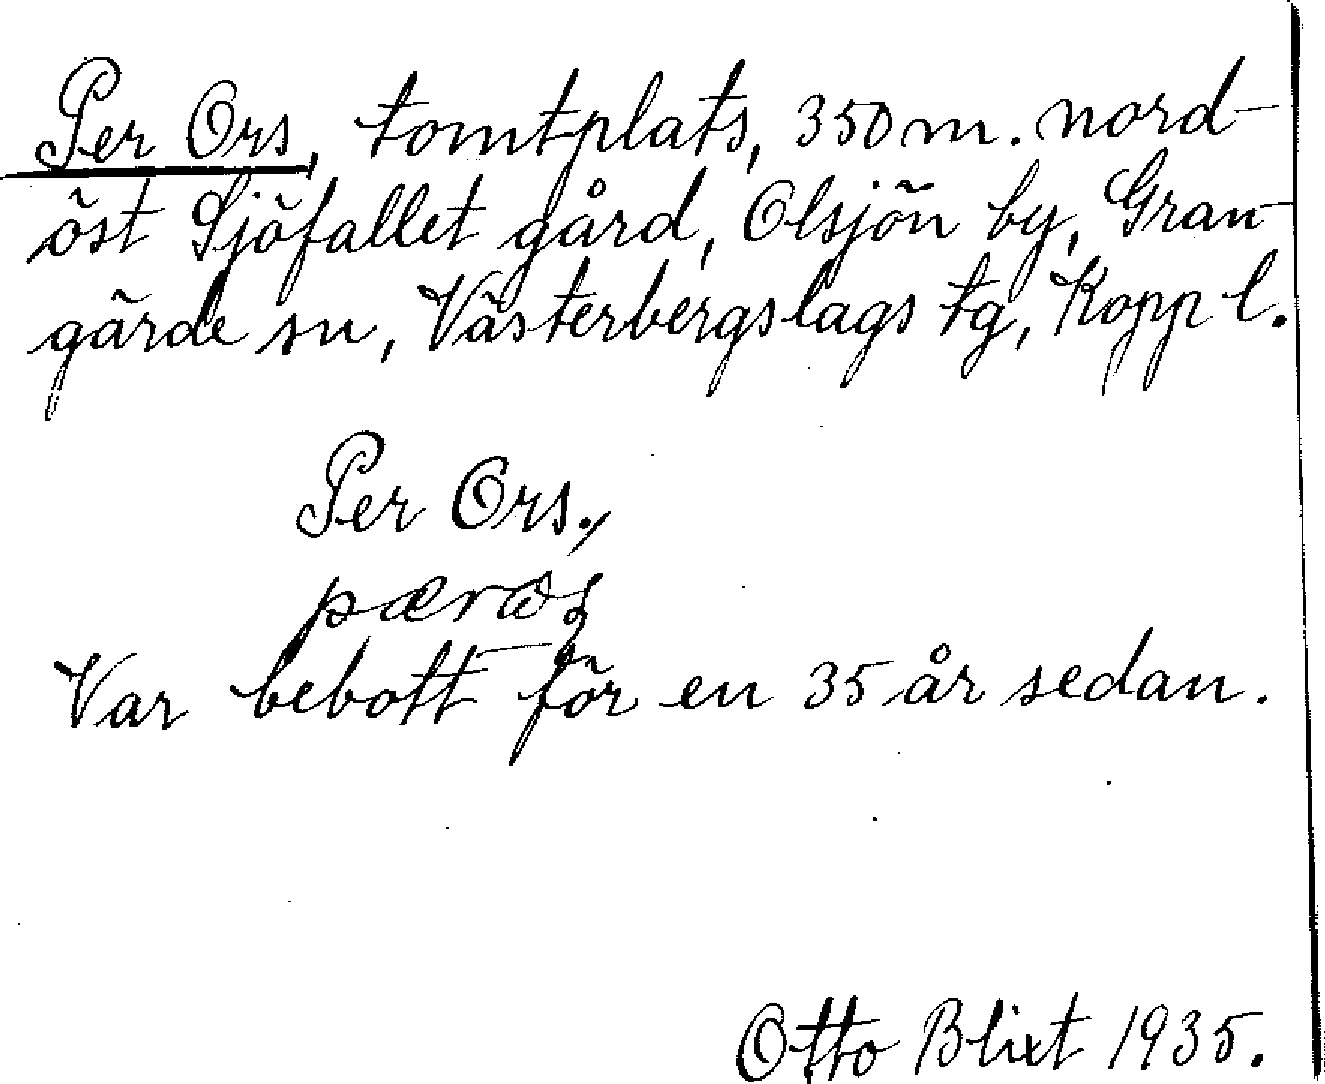 Per Ors, tomtplats, 350 m. nord-
öst Sjöfallet gård, Olsjön by, Gran-
gärde sn, Västerbergslags tg, Kopp l.
Per Ors.,
Var bebott för en 35 år sedan.
Otto Blixt 1935.